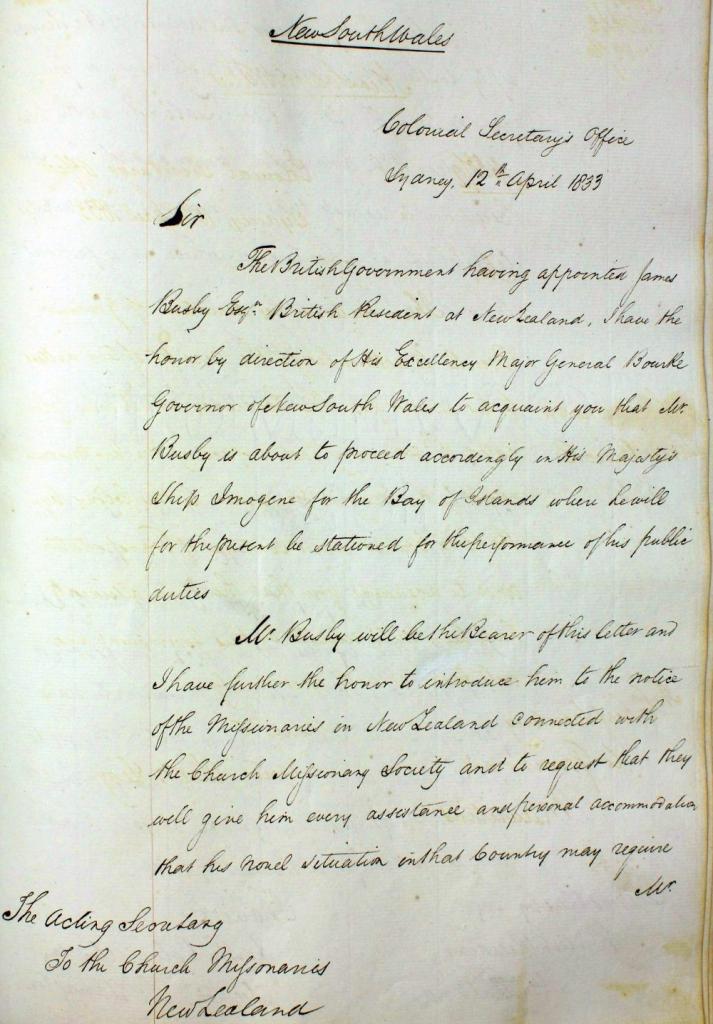 New South Wales
Colonial Secretary's Office
Sydney, 12th April 1833
Sir
The British Government having appointed James
Busby Esqre. British Resident at New Zealand, I have the
honor by direction of His Excellency Major General Bourke
Governor of New South Wales to acquaint you that Mr.
Busby is about to proceed accordingly in His Majesty's
Ship Imogene for the Bay of Islands where he will
for the present be stationed for the performance of his public
duties
Mr. Busby will be the Bearer of this letter and
I have further the honor to introduce him to the notice
of the Missionaries in New Zealand connected with
the Church Missionary Society and to request that they
will give him every assistance and personal accommodation
that his novel situation in that Country may require
Mr.
The Acting Secretary
To the Church Missonaries
New Zealand